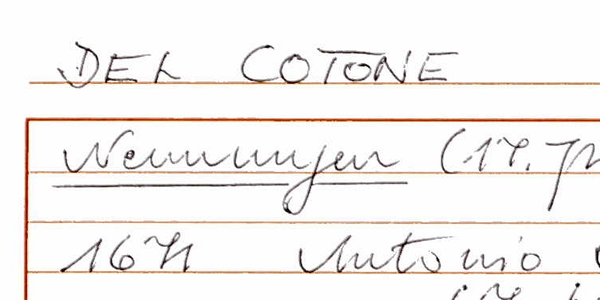 DEL COTONE
Nennungen (17.Jh
1671 Antonio